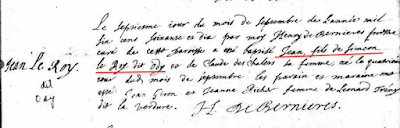 Le septiesme iour du mois de Septembre de l'année mil
six cens soixante et dix par moy Henry de Bernieres prestre
curé de cette paroisse a esté baptisé Jean, fils de Simeon
le Roy dit Ody et de Claude des Chalets sa femme, né le quatriesme
iour dud. mois de Septembre les parain et maraine ont
esté Jean et Jeanne Richer femme de Leonard
dit la Verdure. H. de Bernieres.
Jean Le Roy.
dit
Ody